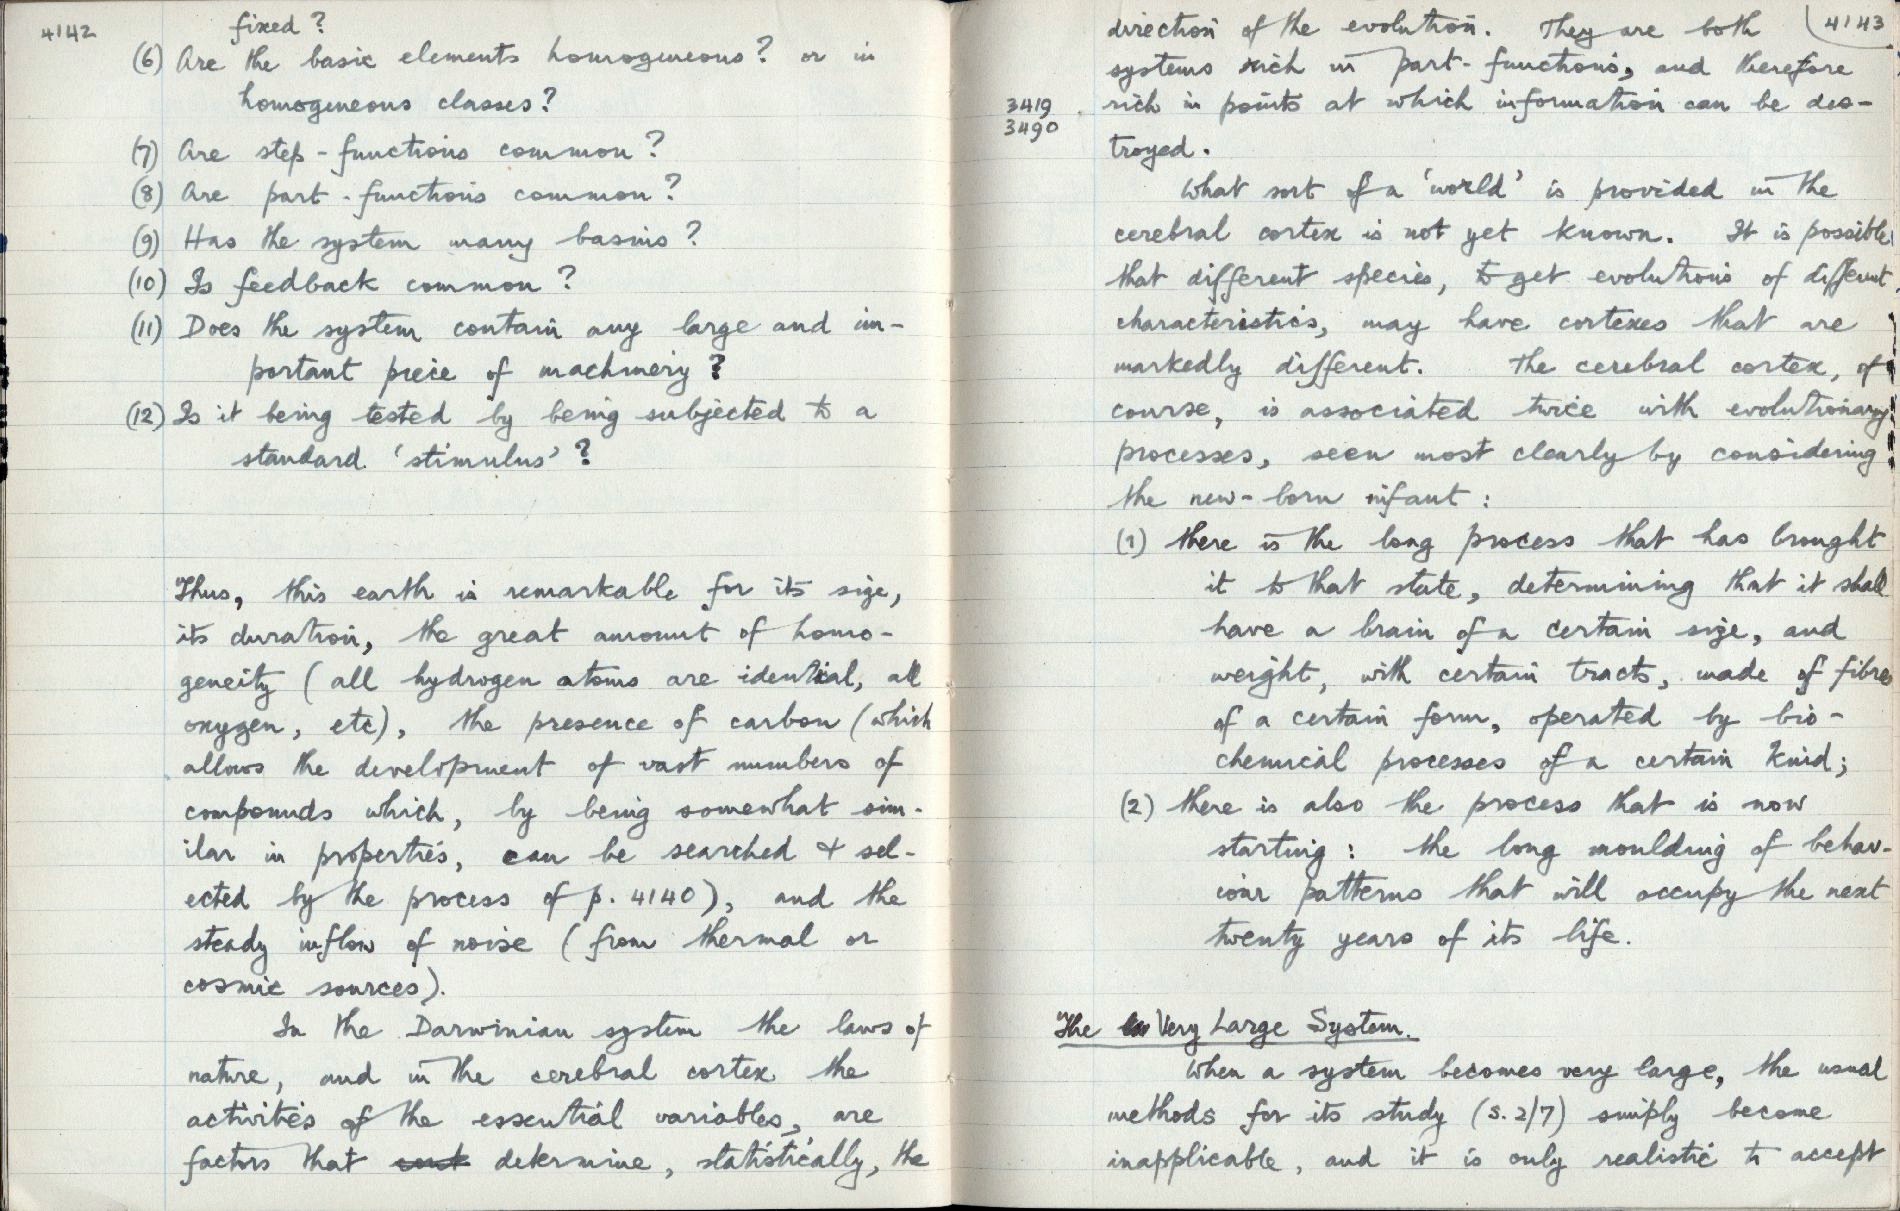 4142
fixed?
(6) Are the basic elements homogeneous? or in
homogeneous classes?
(7) Are step-functions common?
(8) Are part-functions common?
(9) Has the system many basins?
(10) Is feedback common?
(11) Does the system contain any large and im-
portant piece of machinery?
(12) Is it being tested by being subjected to a
standard 'stimulus'?
Thus, this earth is remarkable for its size,
its duration, the great amount of homo-
geneity (all hydrogen atoms are identical, all
oxygen, etc), the presence of carbon (which
allows the development of vast numbers of
compounds which, by being somewhat sim-
ilar in properties, can be searched & sel-
ected by the process of p. 4140), and the
steady inflow of noise (from thermal or
cosmic sources).
In the Darwinian system the laws of
nature, and in the cerebral cortex the
activities of the essential variables, are
factors that determine, statistically, the
4143
direction of the evolution. They are both
systems rich in part-functions, and therefore
3419
3490
rich in points at which information can be des-
troyed.
What sort of a 'world' is provided in the
cerebral cortex is not yet known. It is possible
that different species, to get evolutions of different
characteristics, may have cortexes that are
markedly different. The cerebral cortex, of
course, is associated twice with evolutionary
processes, seen most clearly by considering
the new-born infant:
(1) there is the long process that has brought
it to that state, determining that it shall
have a brain of a certain size, and
weight, with certain tracts, made of fibres
of a certain form, operated by bio-
chemical processes of a certain kind;
(2) there is also the process that is now
starting: the long moulding of behav-
iour patterns that will occupy the next
twenty years of its life.
The Very Large System.
When a system becomes very large, the usual
methods for its study (S. 2/7) simply become
inapplicable, and it is only realistic to accept